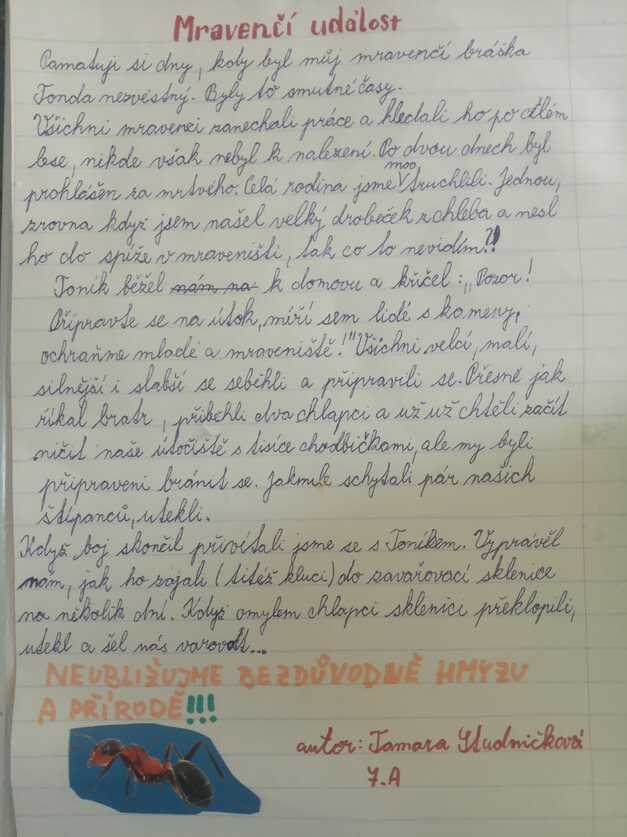 Mravenčí událost
Pamatuji si dny, kdy byl můj mravenčí bráška
Tonda nezvěstný. Byly to smutné časy.
Všichni mravenci zanechali práce a hledali ho po celém
lese, nikde však nebyl k nalezení. Po dvou dnech byl
prohlášen za mrtvého. Celá rodina jsme moc truchlili. Jednou,
zrovna když jsem našel velký drobeček z chleba a nesl
ho do spíže v mraveništi, tak co to nevidím?!
Toník běžel nám na k domovu a křičel: „Pozor!
Připravte se na útok, míří sem lidé s kameny,
ochraňme mladé a mraveniště!" Všichni velcí, malí,
silnější i slabší se seběhli a připravili se. Přesně jak
říkal bratr, přiběhli dva chlapci a už už chtěli začít
ničit naše útočiště s tisíce chodbičkami, ale my byli
připraveni bránit se. Jakmile schytali pár našich
štípanců, utekli.
Když boj skončil přivítali jsme se s Toníkem. Vyprávěl
nám, jak ho zajali (titéž kluci) do zavařovací sklenice
na několik dní. Když omylem chlapci sklenici překlopili,
utekl a šel nás varovat...
NEUBLIŽUJME BEZDŮVODNĚ HMYZU
A PŘÍRODĚ!!!
autor: Tamara Studničková
7.A